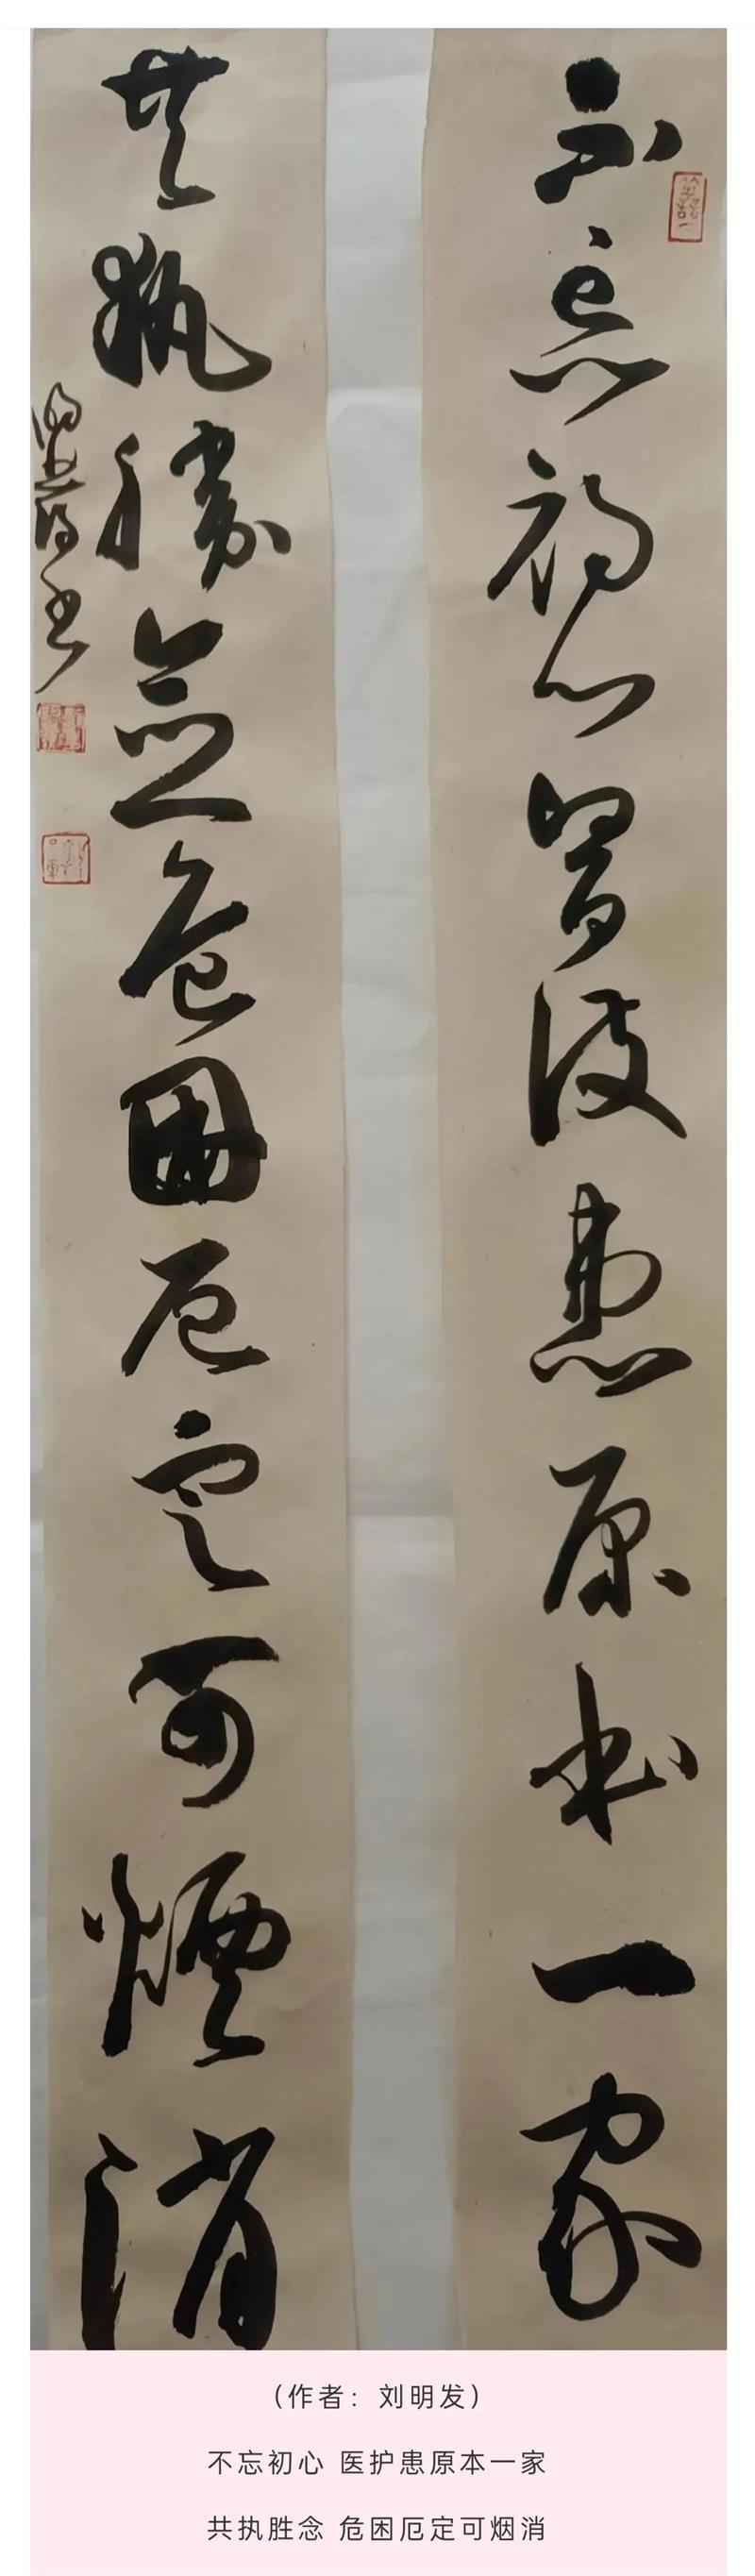 不忘初心醫護患原本一家
共執勝念危困厄定可煙消
(作者：刘明发)
不忘初心 医护患原本一家
共执胜念 危困厄定可烟消